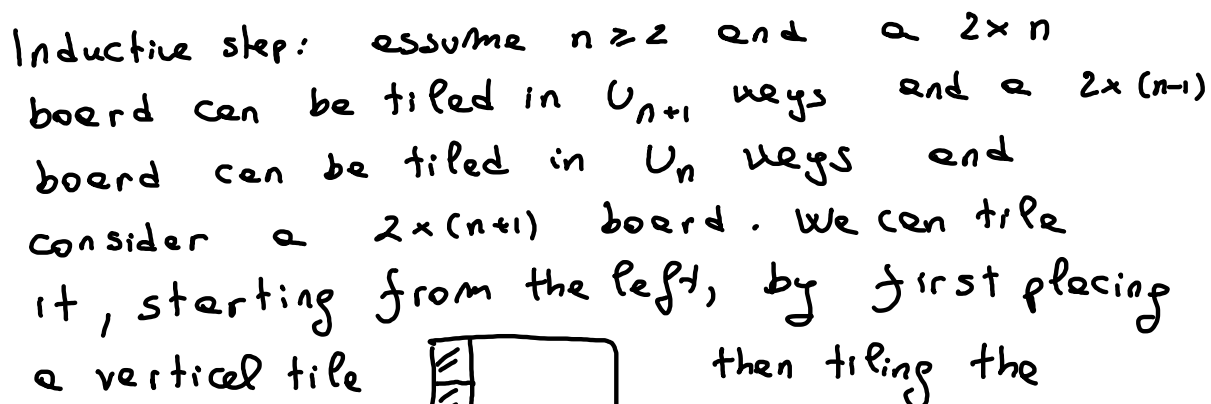 Inductive step: assume n ≥ 2 and a 2 × n
board can be tiled in U_{n+1} ways and a 2 × (n-1)
board can be tiled in U_n ways and
consider a 2 × (n+1) board. We can tile
it, starting from the left, by first placing
a vertical tile then tiling the